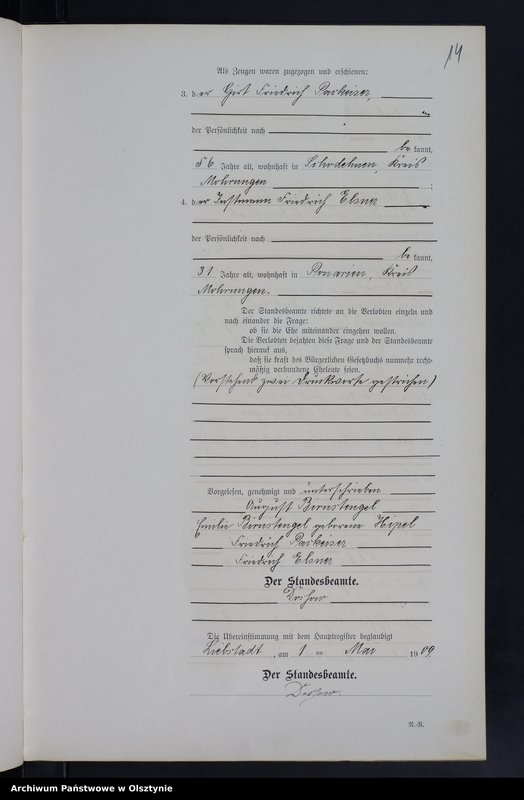 14
Als Zeugen waren zugezogen und erschienen:
3. der Wirt Friedrich Paskeiser,
der Persönlichkeit nach
be kannt,
56 Jahre alt, wohnhaft in Schodehnen, Kreis
Mohrungen ;
4. der Instmann Friedrich Elsner
der Persönlichkeit nach
be kannt,
31 Jahre alt, wohnhaft in Ponarien, Kreis
Mohrungen.
Der Standesbeamte richtete an die Verlobten einzeln und
nach einander die Frage:
ob sie die Ehe miteinander eingehen wollen.
Die Verlobten bejahten diese Frage und der Standesbeamte
sprach hierauf aus,
daß sie kraft des Bürgerlichen Gesetzbuchs nunmehr recht-
mäßig verbundene Eheleute seien.
(Vorstehend zwei Druckworte gestrichen)
Vorgelesen, genehmigt und unterschrieben
August Birnstengel
Emilie Birnstengel geborene Hipel
Friedrich Paskeiser
Friedrich Elsner
Der Standesbeamte.
Die Übereinstimmung mit dem Hauptregister beglaubigt
Liebstadt, am 1 ten Mai 1909.
Der Standesbeamte.
R.-R.
Archiwum Państwowe w Olsztynie